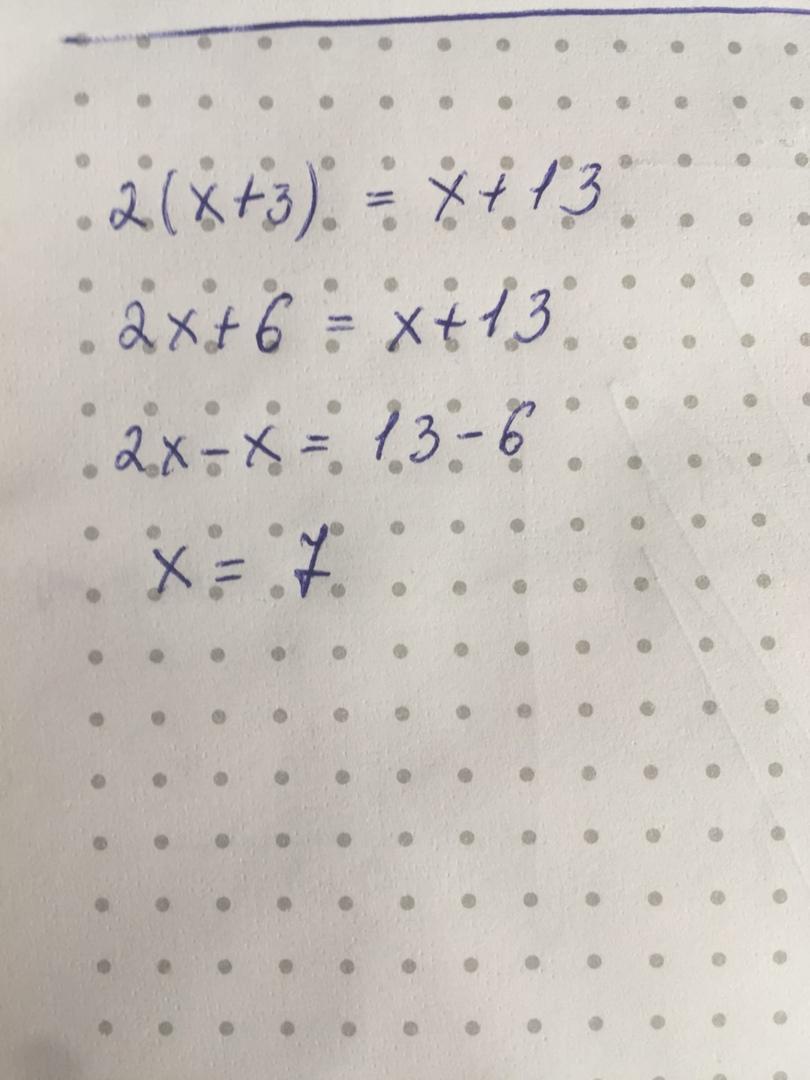 2(x+3) = x+13
2x+6 = x+13
2x-x = 13-6
x = 7